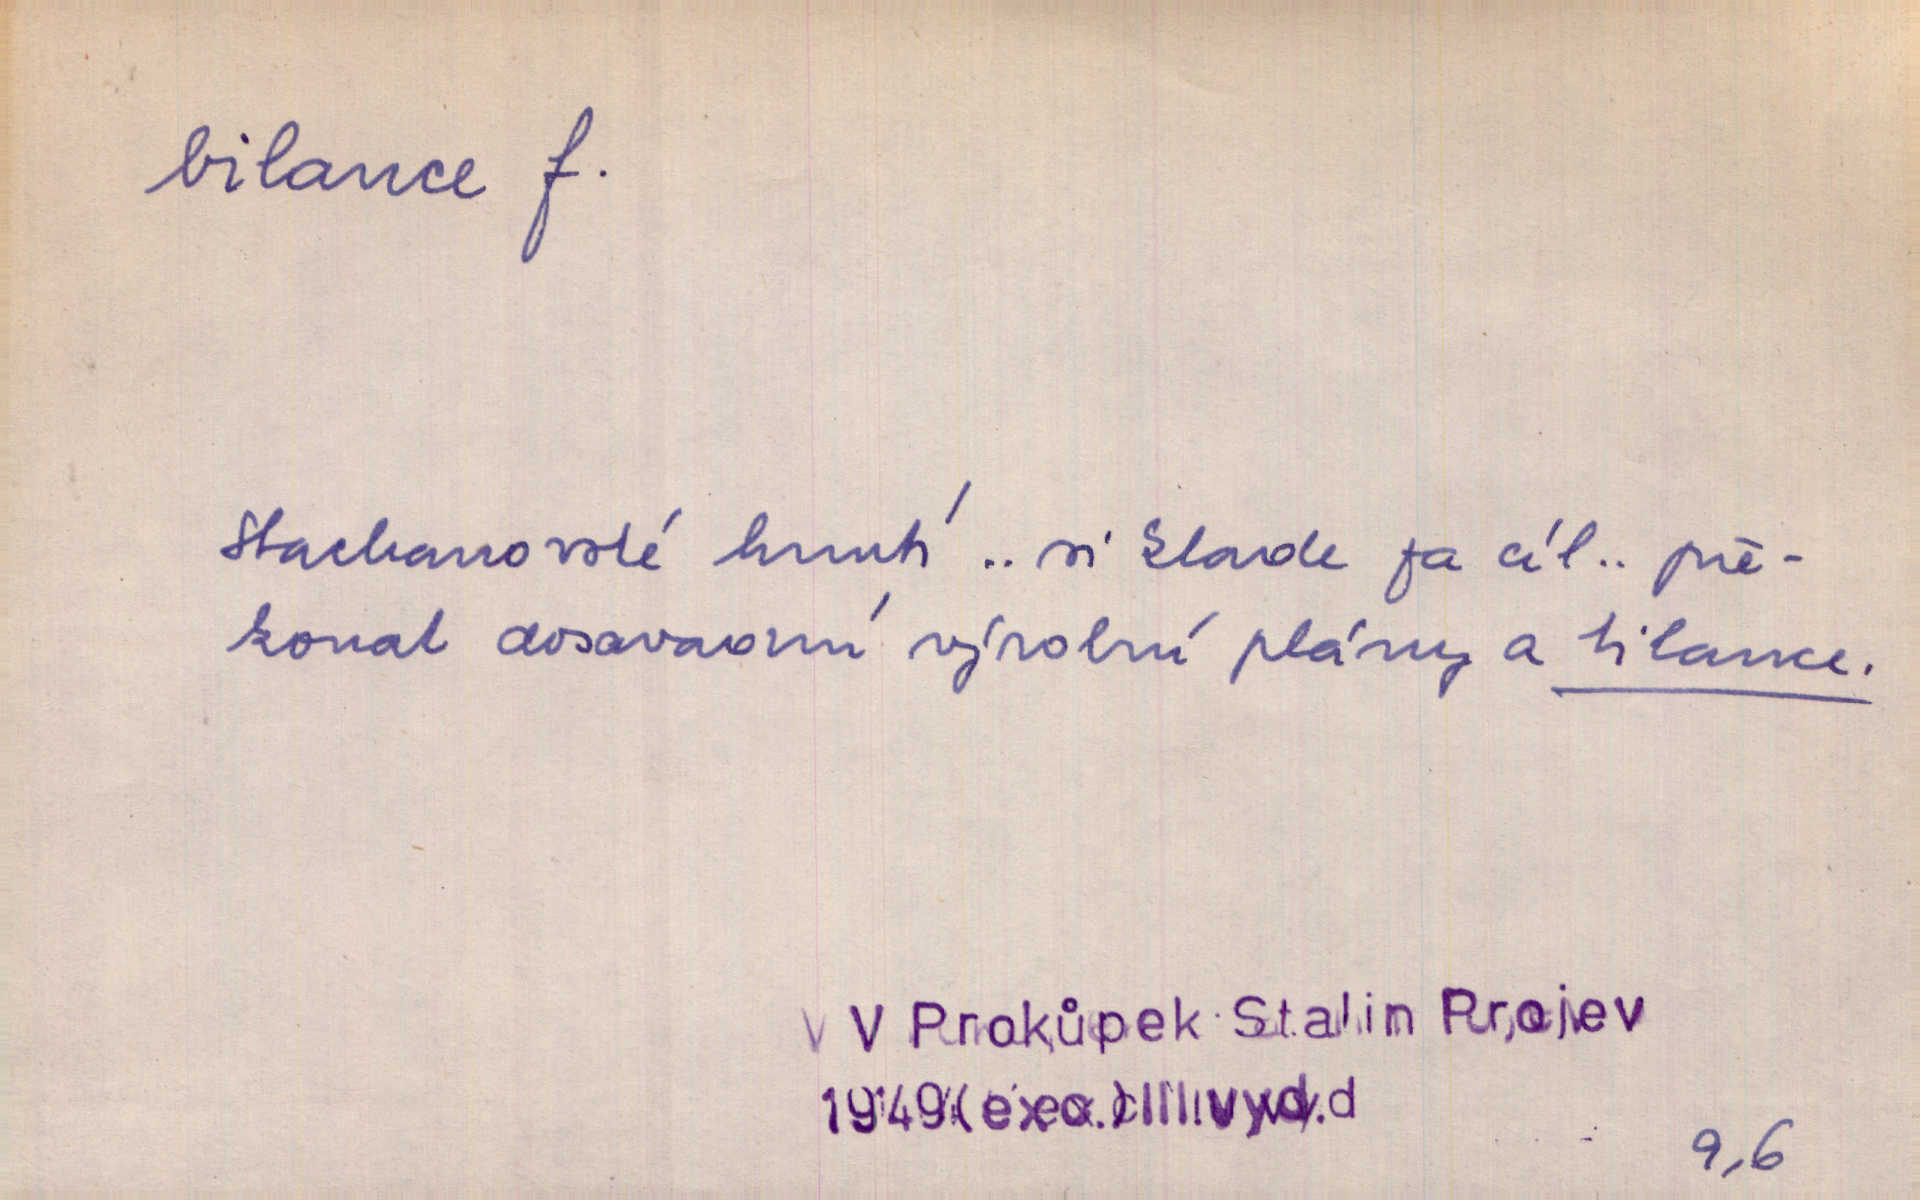 bilance f.
Stachanovské hnutí .. si klade za cíl .. pře-
konat dosavadní výrobní plány a bilance.
V Prokůpek Stalin Projev
1949 (exc.) III. vyd.
9,6